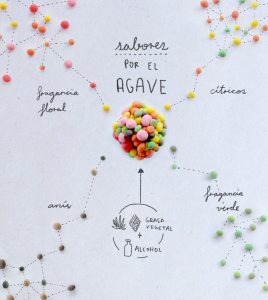 sabores
POR EL
AGAVE
fragancia
floral
cítricos
anís
fragancia
verde
GRASA
VEGETAL
+
ALCOHOL